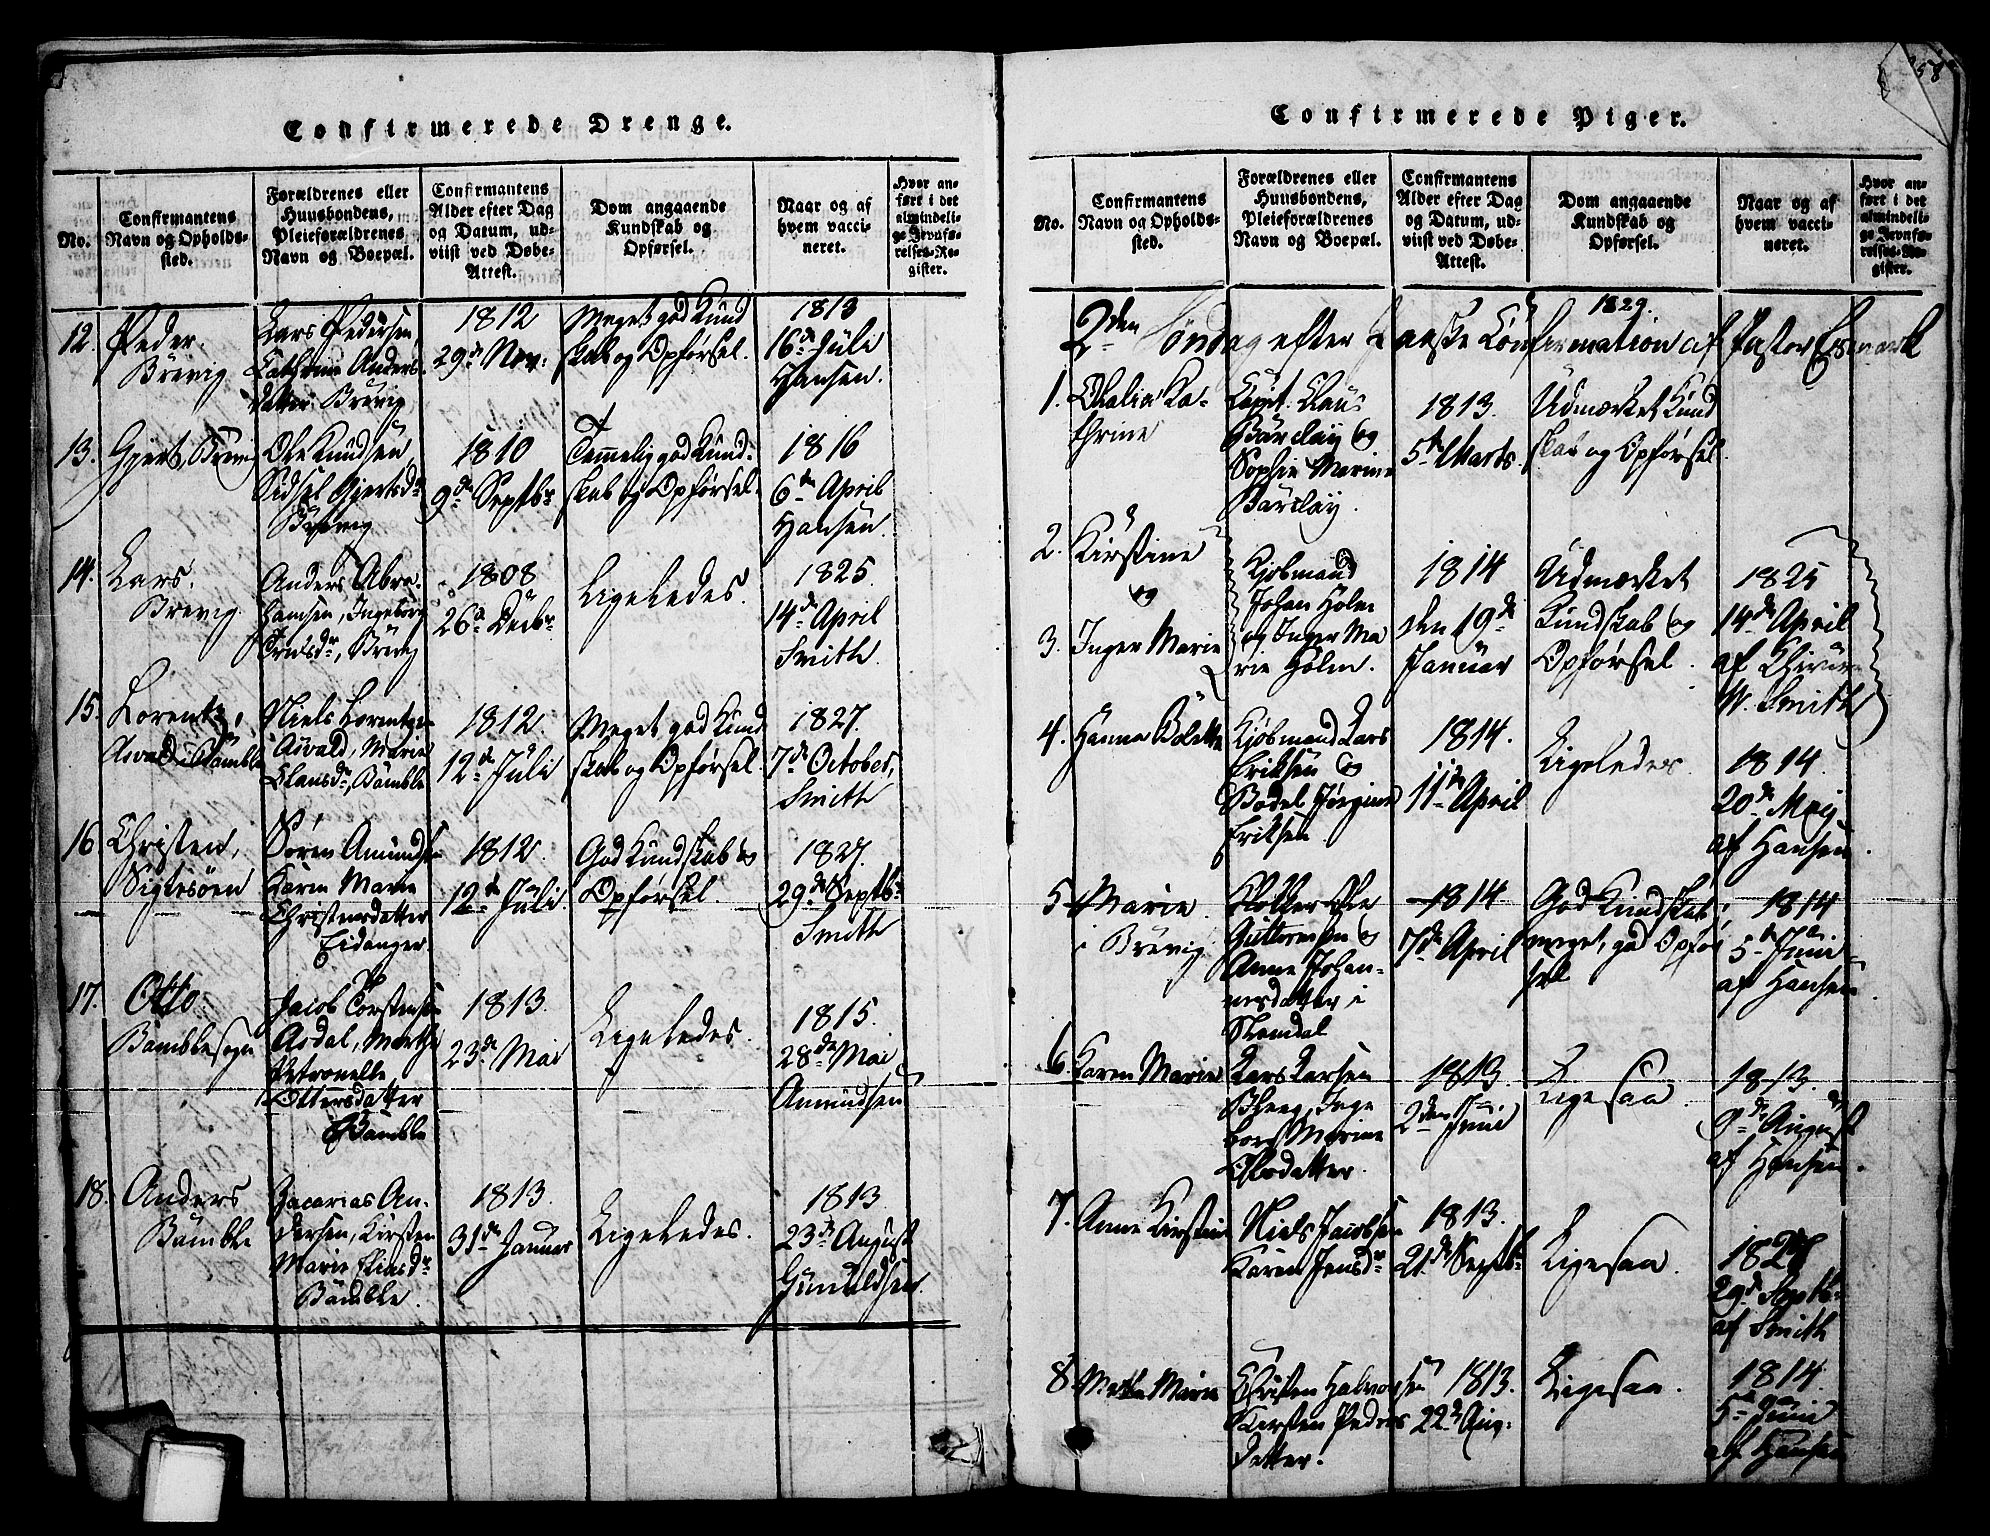 58
Confirmerede Drenge.
No.
Confirmantens
Navn og Opholds-
sted.
Forældrenes eller
Huusbondens,
Pleieforældrenes
Navn og Boepæl.
Confirmantens
Alder efter Dag
og Datum, ud-
viist ved Døbe-
Attest.
Dom angaaende
Kundskab og
Opførsel.
Naar og af
hvem vacci-
neret.
Hvor an-
ført i det
almindeli-
ge Jevnfø-
relses-Re-
gister.
12.
Peder.
Brevig
Lars Pedersen,
Cathrine Anders-
datter, Brevig
1812
29de Nov:
Meget god Kund
skab og Opførsel.
1813
16de Juli
Hansen.
13.
Gjert, Brevig
Ole Knudsen,
Sidsel Gjertsdr
Brevig
1810
9de Septbr
Temmelig god Kund-
skab og Opførsel.
1816
6te April
Hansen.
14.
Lars.
Brevig
Anders Abra-
hamsen, Ingeborg
Trulsdr, Brevig
1808
26de Decbr
Ligeledes.
1825.
14de April
Smith.
15.
Lorentz,
Asvald i Bamble
Niels Lorentzen
Asvald, Marie
Clausdr, Bamble
1812.
12de Juli
Meget god Kund
skab og Opførsel.
1827.
7de October,
Smith
16
Christen,
Sigtesøen
Søren Amundsen
Karen Marie
Christensdatter
Eidanger
1812.
12te Juli.
God Kundskab og
Opførsel.
1827.
29de Septbr
Smith
17.
Otto
Bamble sogn
Jacob Torstensen
Asdal, Marthe
Petronelle
Ottersdatter
Bamble
1813.
23de Mai
Ligeledes.
1815.
28de Mai
Amundsen
18.
Anders
Bamble
Zacarias An-
dersen, Kirsten
Marie Eliasdr
Bamble.
1813.
31de Januar
Ligeledes.
1813
23de August
Gunuldsen.
Confirmerede Piger.
No.
Confirmantens
Navn og Opholds-
sted.
Forældrenes eller
Huusbondens,
Pleieforældrenes
Navn og Boepæl.
Confirmantens
Alder efter Dag
og Datum, ud-
viist ved Døbe-
Attest.
Dom angaaende
Kundskab og
Opførsel.
Naar og af
hvem vacci-
neret.
Hvor an-
ført i det
almindeli-
ge Jevnfø-
relses-Re-
gister.
1829.
2den Søndag efter Paaske Confirmation af Pastor Esmark
1.
Thalia Ca-
thrine
Capit. Claus
Barclay og
Sophie Marine
Barclay.
1813.
5te Marts
Udmærket Kund
skab og Opførsel
2.
Kirstine
og
3.
Inger Marie
Kjøbmand
Johan Holm
og Inger Ma
rie Holm.
1814
den 19de
Januar
Udmærket
Kundskab og
Opførsel.
1825
14de April
af Chirur
W. Smith
4.
Hanna Bolette
Kjøbmand Lars
Eriksen og
Bodel Jørgine
Eriksen
1814.
11te April
Ligeledes.
1814.
20de Maj
af Hansen.
5.
Marie.
i Brevig
Ole
Guttormsen og
Anne Johan-
nesdatter i
Stendal
1814.
7de April
God Kundskab,
meget god Opfør
sel
1814
5te Juni
af Hansen.
6.
Karen Marie
Lars Larsen
Inge
borg Marine
Olsdatter.
1813.
2den Juni
Ligesaa.
1813.
9de August
af Hansen.
7.
Anne Kirstine
Niels Jacobsen
Karen Jensdr
1813.
21de Septbr
Ligesaa.
1827
29de Septbr
af Smith
8.
Marthe Marie
Christen Halvorsen
Kirsten Peders
datter.
1813.
22de Aug:
Ligesaa.
1814.
5te Juni
af Hansen